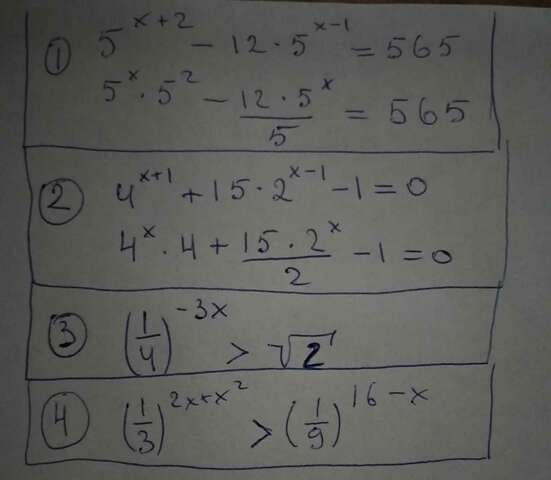 ① 5^(x+2) - 12 · 5^(x-1) = 565
5^x · 5^2 - (12 · 5^x)/5 = 565
② 4^(x+1) + 15 · 2^(x-1) - 1 = 0
4^x · 4 + (15 · 2^x)/2 - 1 = 0
③ (1/4)^(-3x) > √2
④ (1/3)^(2x+x^2) > (1/9)^(16-x)